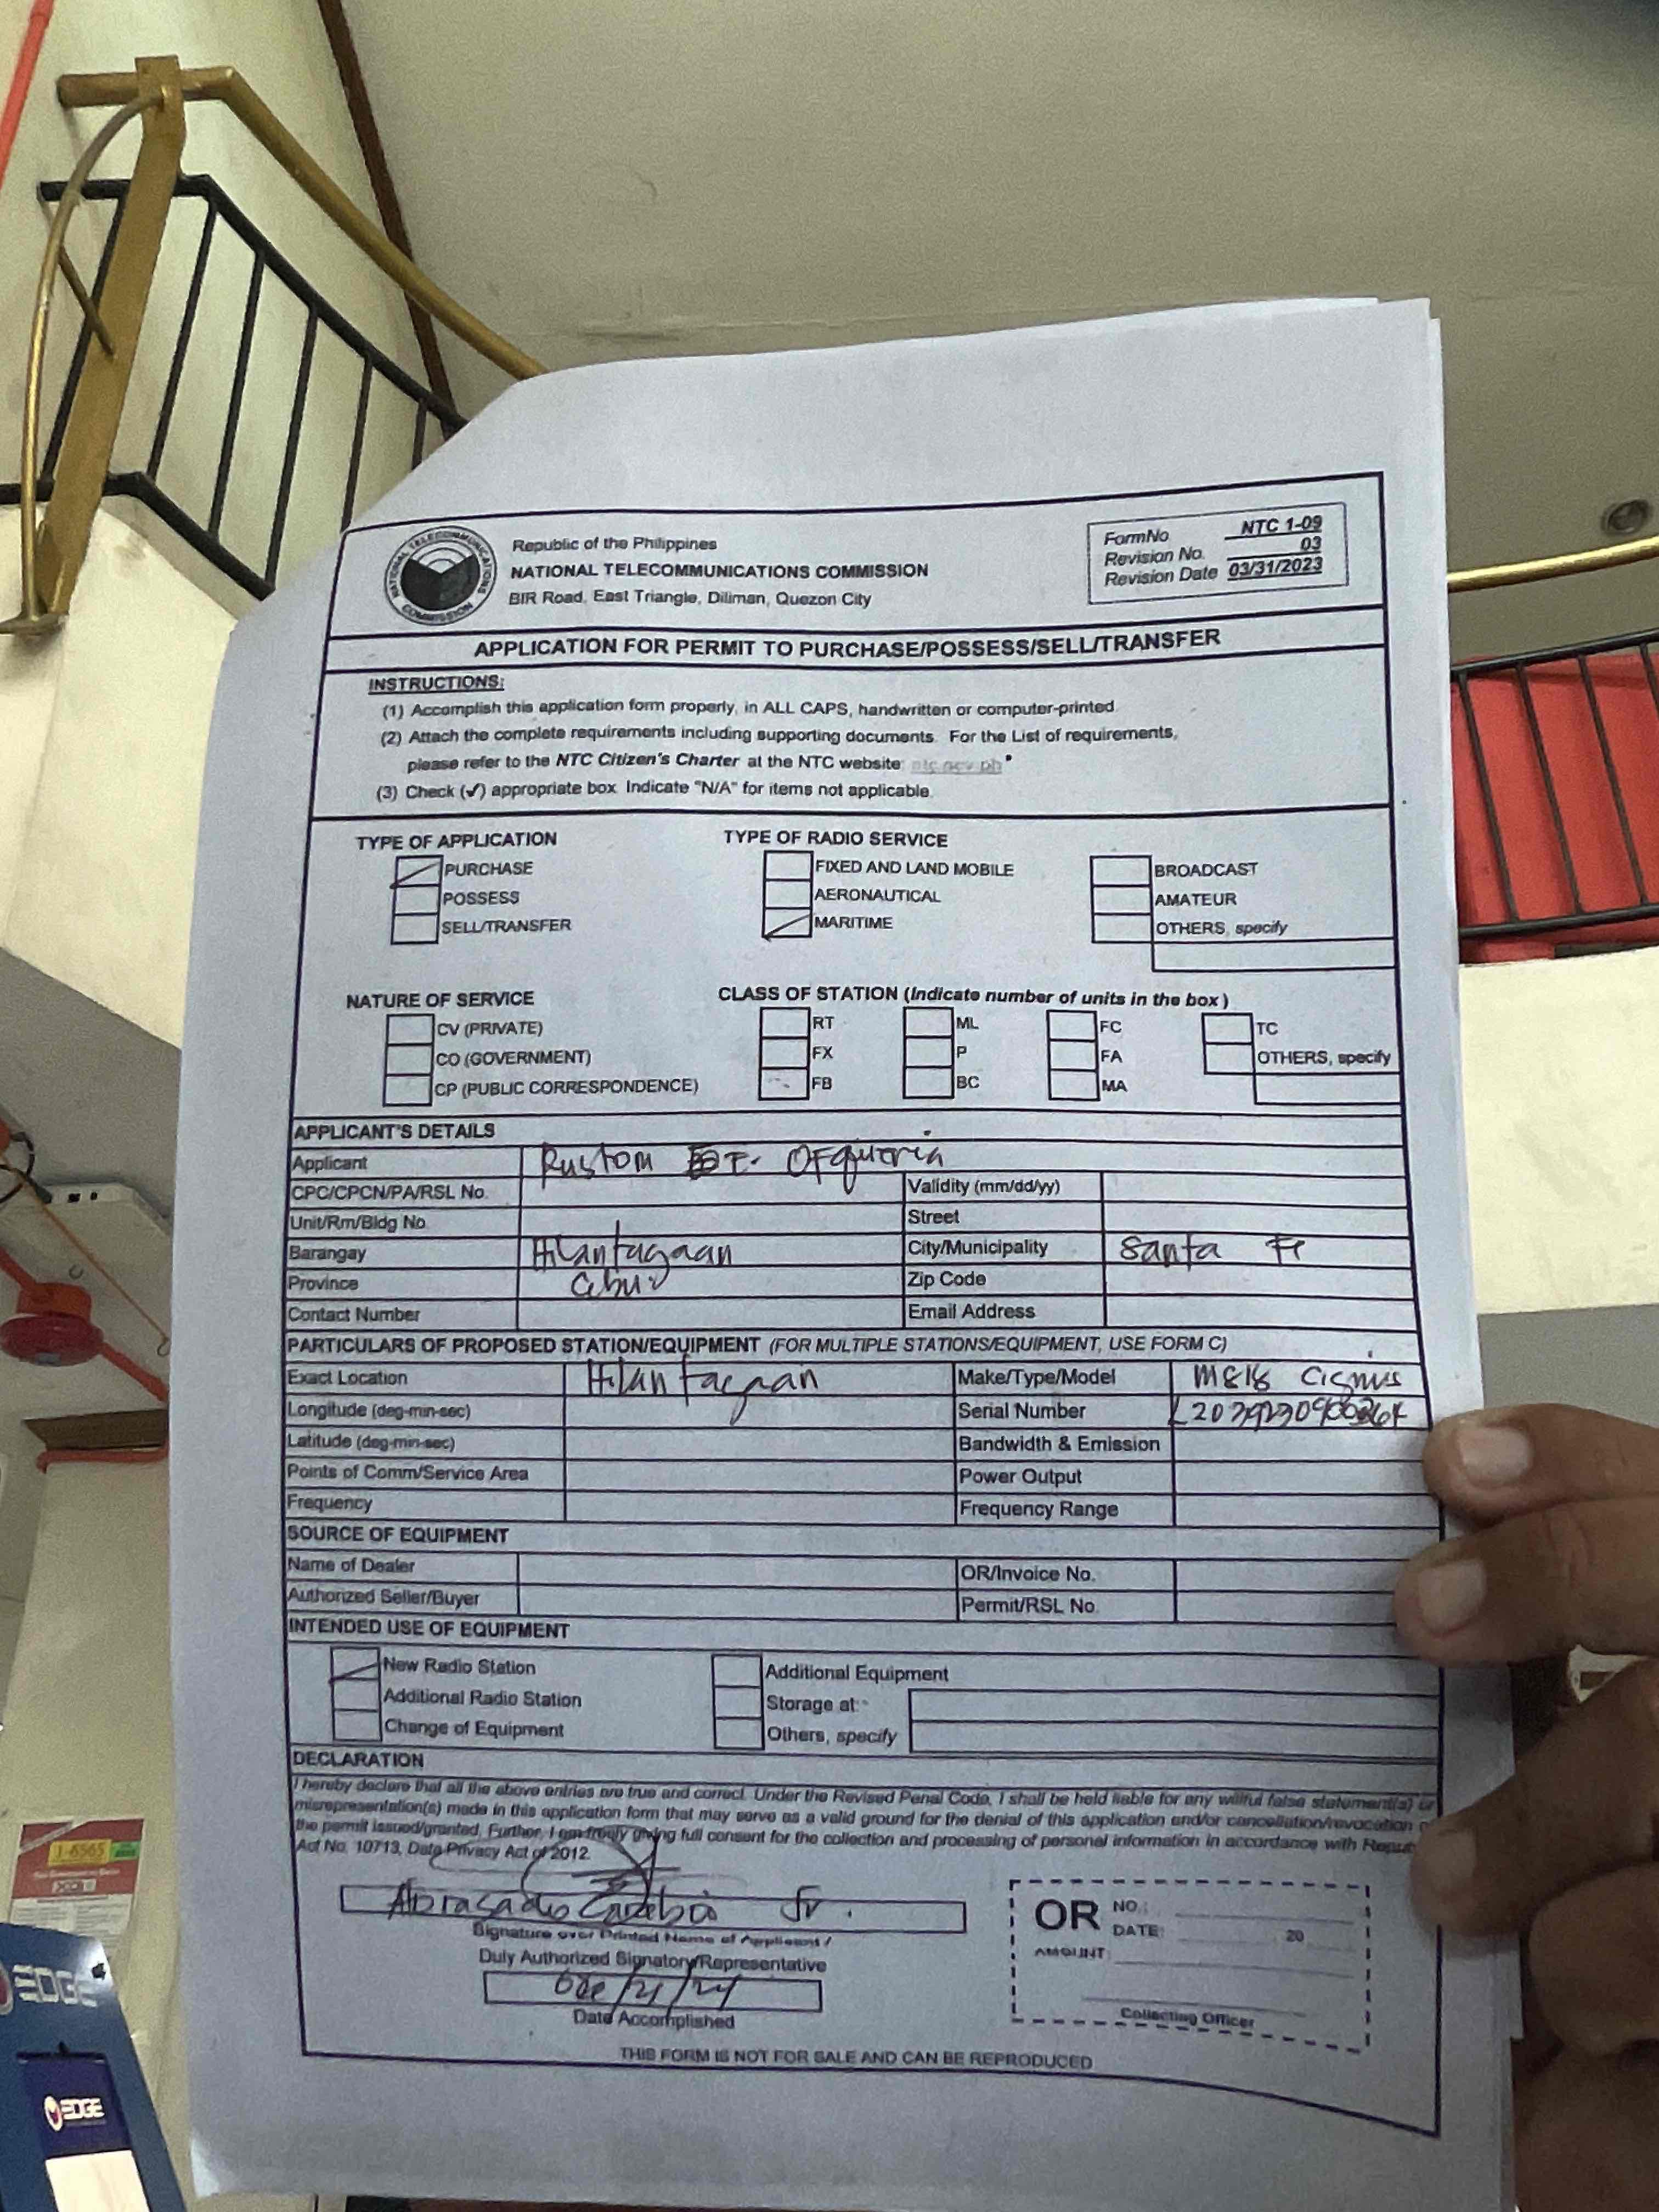 Republic of the Philippines
NATIONAL TELECOMMUNICATIONS COMMISSION
BIR Road, East Triangle, Diliman, Quezon City
NATIONAL TELECOMMUNICATIONS COMMISSION
FormNo NTC 1-09
Revision No. 03
Revision Date 03/31/2023
APPLICATION FOR PERMIT TO PURCHASE/POSSESS/SELL/TRANSFER
INSTRUCTIONS:
(1) Accomplish this application form properly, in ALL CAPS, handwritten or computer-printed.
(2) Attach the complete requirements including supporting documents. For the List of requirements,
please refer to the NTC Citizen's Charter at the NTC website: ntc.gov.ph
(3) Check (✓) appropriate box. Indicate "N/A" for items not applicable.
TYPE OF APPLICATION
PURCHASE
POSSESS
SELL/TRANSFER
TYPE OF RADIO SERVICE
FIXED AND LAND MOBILE
AERONAUTICAL
MARITIME
BROADCAST
AMATEUR
OTHERS, specify
NATURE OF SERVICE
CV (PRIVATE)
CO (GOVERNMENT)
CP (PUBLIC CORRESPONDENCE)
CLASS OF STATION (Indicate number of units in the box)
RT ML FC TC
FX P FA OTHERS, specify
FB BC MA
APPLICANT'S DETAILS
Applicant Rustom
CPC/CPCN/PA/RSL No. Validity (mm/dd/yy)
Unit/Rm/Bldg No. Street
Barangay Hilantagaan City/Municipality Santa Fe
Province Cebu Zip Code
Contact Number Email Address
PARTICULARS OF PROPOSED STATION/EQUIPMENT (FOR MULTIPLE STATIONS/EQUIPMENT, USE FORM C)
Exact Location Hilantagaan Make/Type/Model
Longitude (deg-min-sec) Serial Number
Latitude (deg-min-sec) Bandwidth & Emission
Points of Comm/Service Area Power Output
Frequency Frequency Range
SOURCE OF EQUIPMENT
Name of Dealer OR/Invoice No.
Authorized Seller/Buyer Permit/RSL No.
INTENDED USE OF EQUIPMENT
New Radio Station Additional Equipment
Additional Radio Station Storage at:
Change of Equipment Others, specify
DECLARATION
I hereby declare that all the above entries are true and correct. Under the Revised Penal Code, I shall be held liable for any willful false statement(s) or
misrepresentation(s) made in this application form that may serve as a valid ground for the denial of this application and/or cancellation/revocation
the permit issued/granted. Further, I am freely giving full consent for the collection and processing of personal information in accordance with
Act No. 10713, Data Privacy Act of 2012.
Jr.
Signature over Printed Name of Applicant/
Duly Authorized Signatory/Representative
Date Accomplished
OR NO.:
DATE: 20
AMOUNT:
Collecting Officer
THIS FORM IS NOT FOR SALE AND CAN BE REPRODUCED
1-6565
EDGE
EDGE